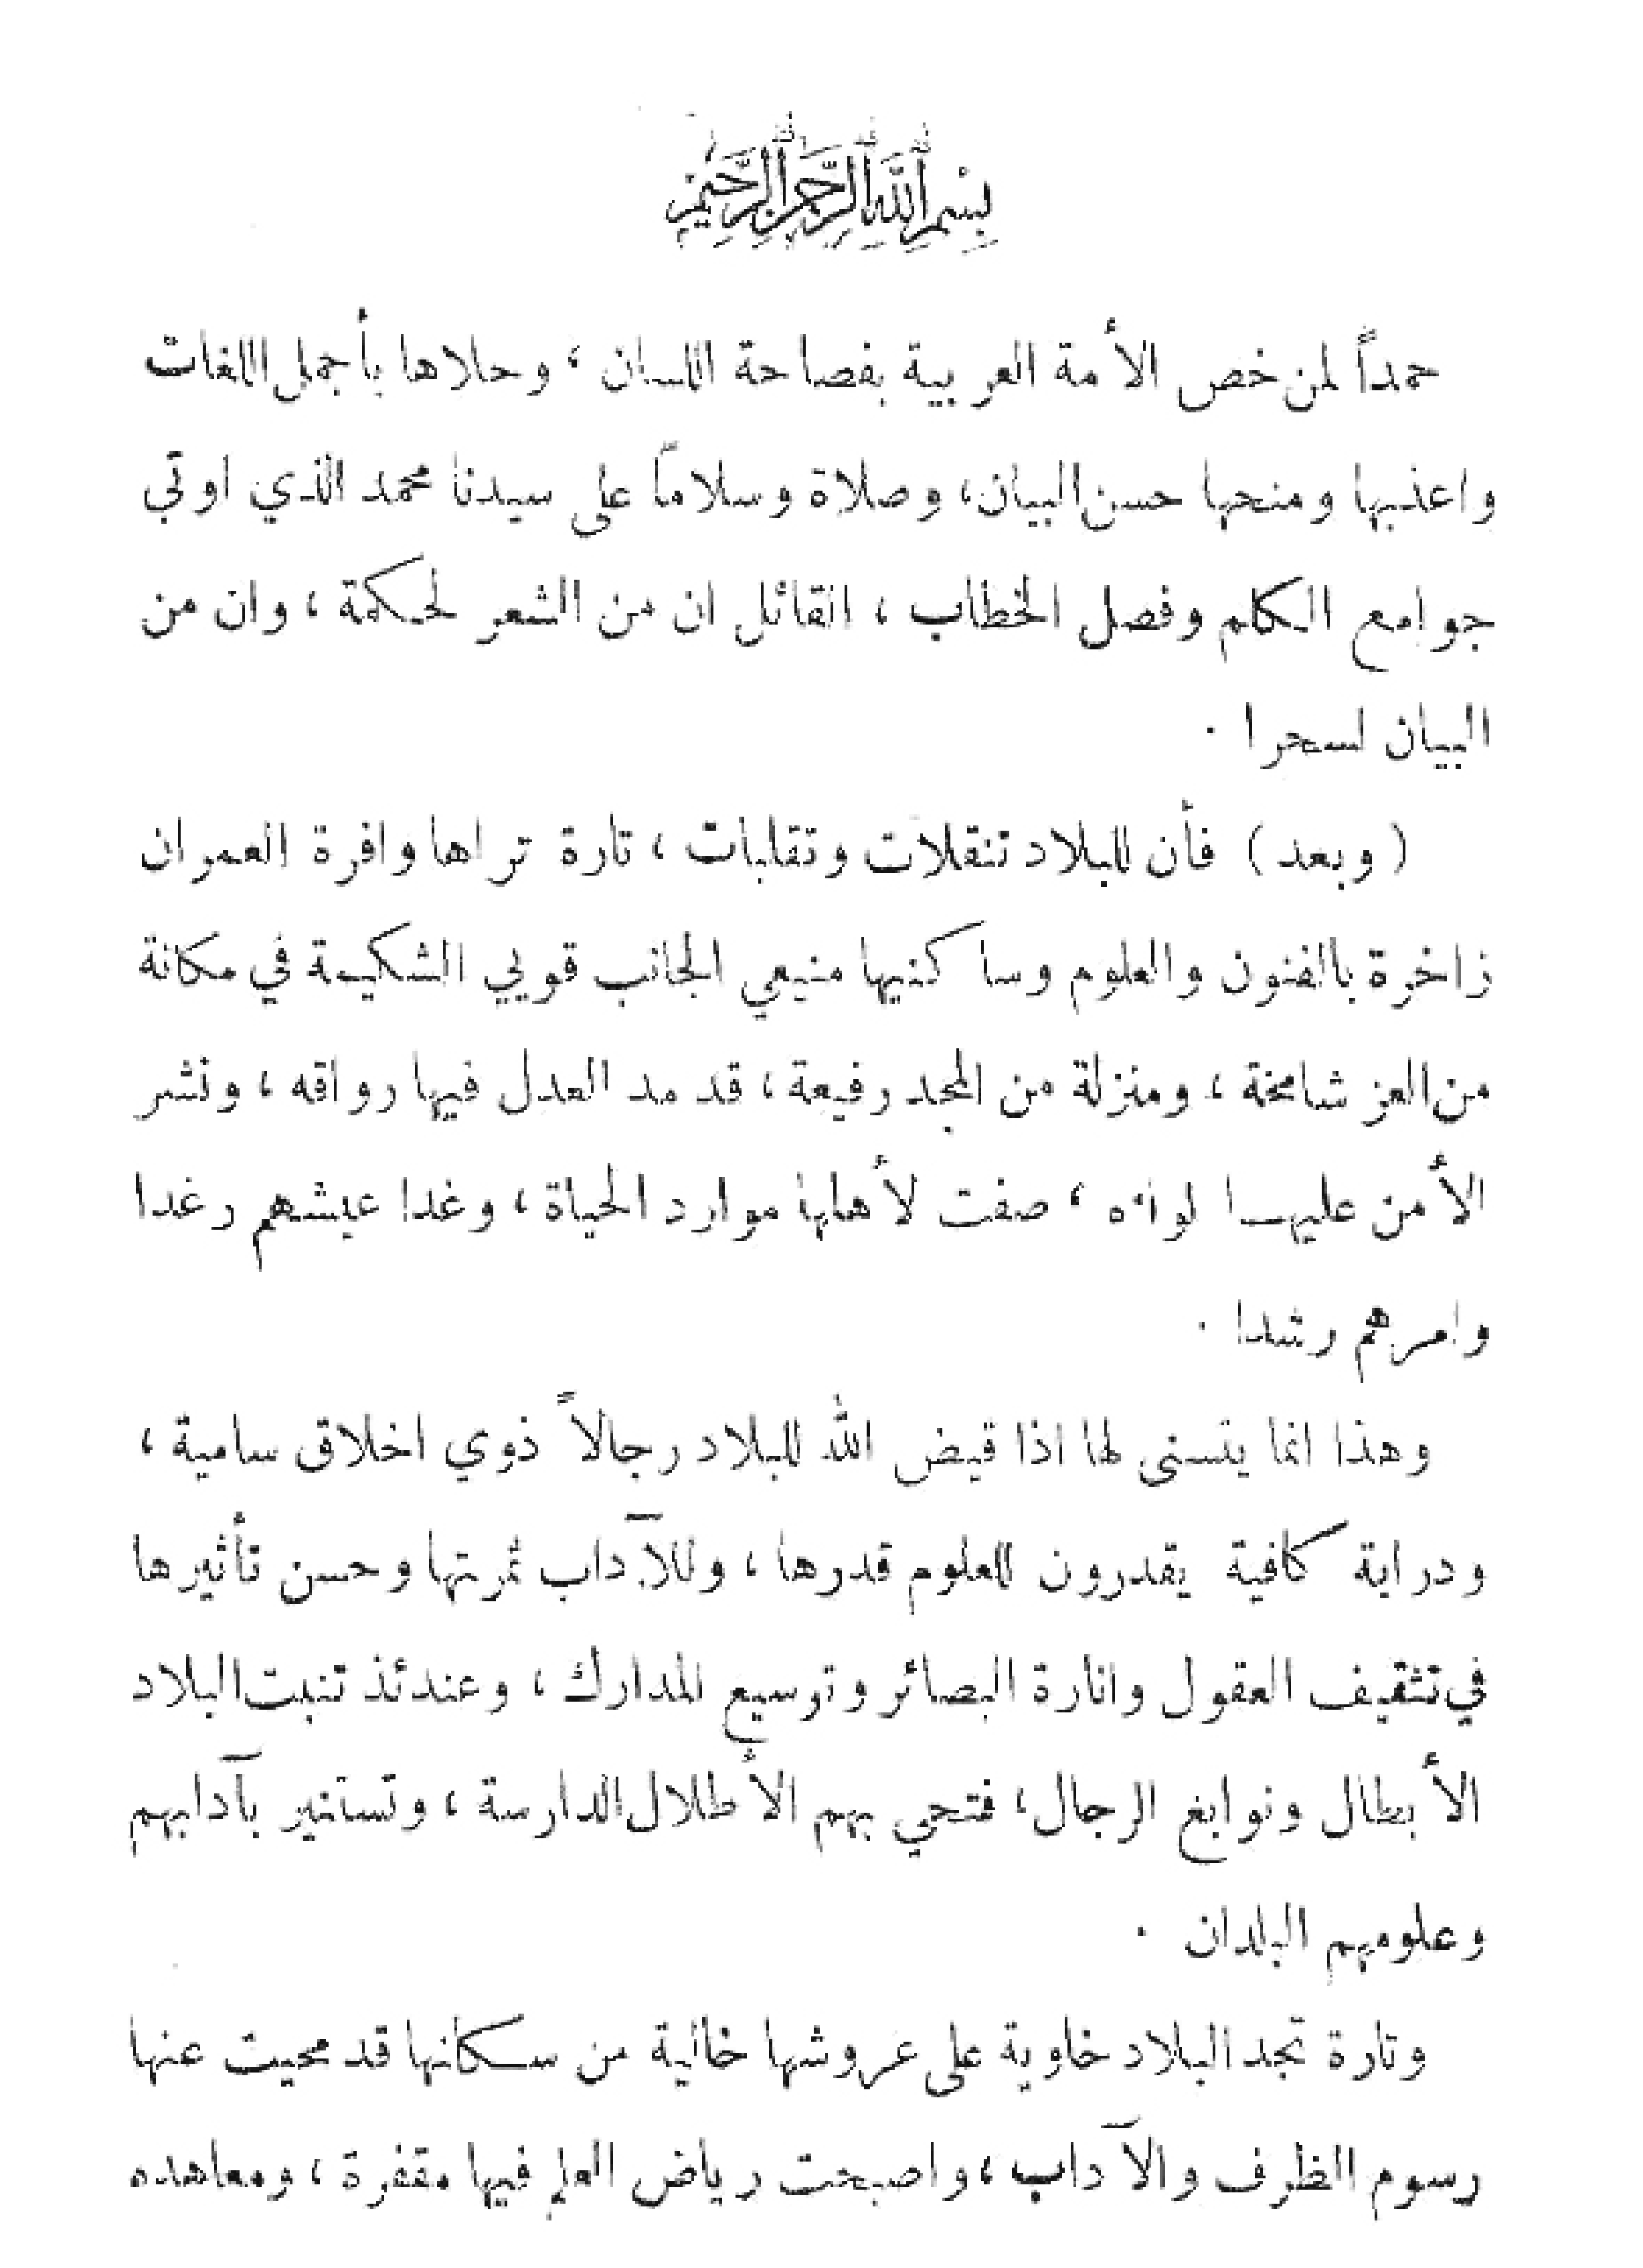 بِسْمِ اللَّهِ الرَّحْمَنِ الرَّحِيمِ
حمداً لمن خص الأمة العربية بفصاحة اللسان ، وحلاها بأجمل اللغات
واعذبها ومنحها حسن البيان، وصلاة وسلاماً على سيدنا محمد الذي اوتي
جوامع الكلم وفصل الخطاب ، القائل ان من الشعر لحكمة ، وان من
البيان لسحرا .
( وبعد ) فأن للبلاد تنقلات وتقلبات ، تارة تراها وافرة العمران
زاخرة بالفنون والعلوم وساكنيها منيعي الجانب قويي الشكيمة في مكانة
من العز شامخة ، ومنزلة من المجد رفيعة ، قد مد العدل فيها رواقه ، ونشر
الأمن عليها لواءه ، صفت لأهلها موارد الحياة ، وغدا عيشهم رغدا
وامرهم رشدا .
وهذا انما يتسنى لها اذا قيض الله للبلاد رجالاً ذوي اخلاق سامية ،
ودراية كافية يقدرون للعلوم قدرها ، وللآداب ثمرتها وحسن تأثيرها
في تثقيف العقول وانارة البصائر وتوسيع المدارك ، وعندئذ تنبت البلاد
الأبطال ونوابغ الرجال، فتحيي بهم الأطلال الدارسة ، وتستنير بآدابهم
وعلومهم البلدان .
وتارة تجد البلاد خاوية على عروشها خالية من سكانها قد محيت عنها
رسوم الظرف والآداب ، واصبحت رياض العلم فيها مقفرة ، ومعاهده